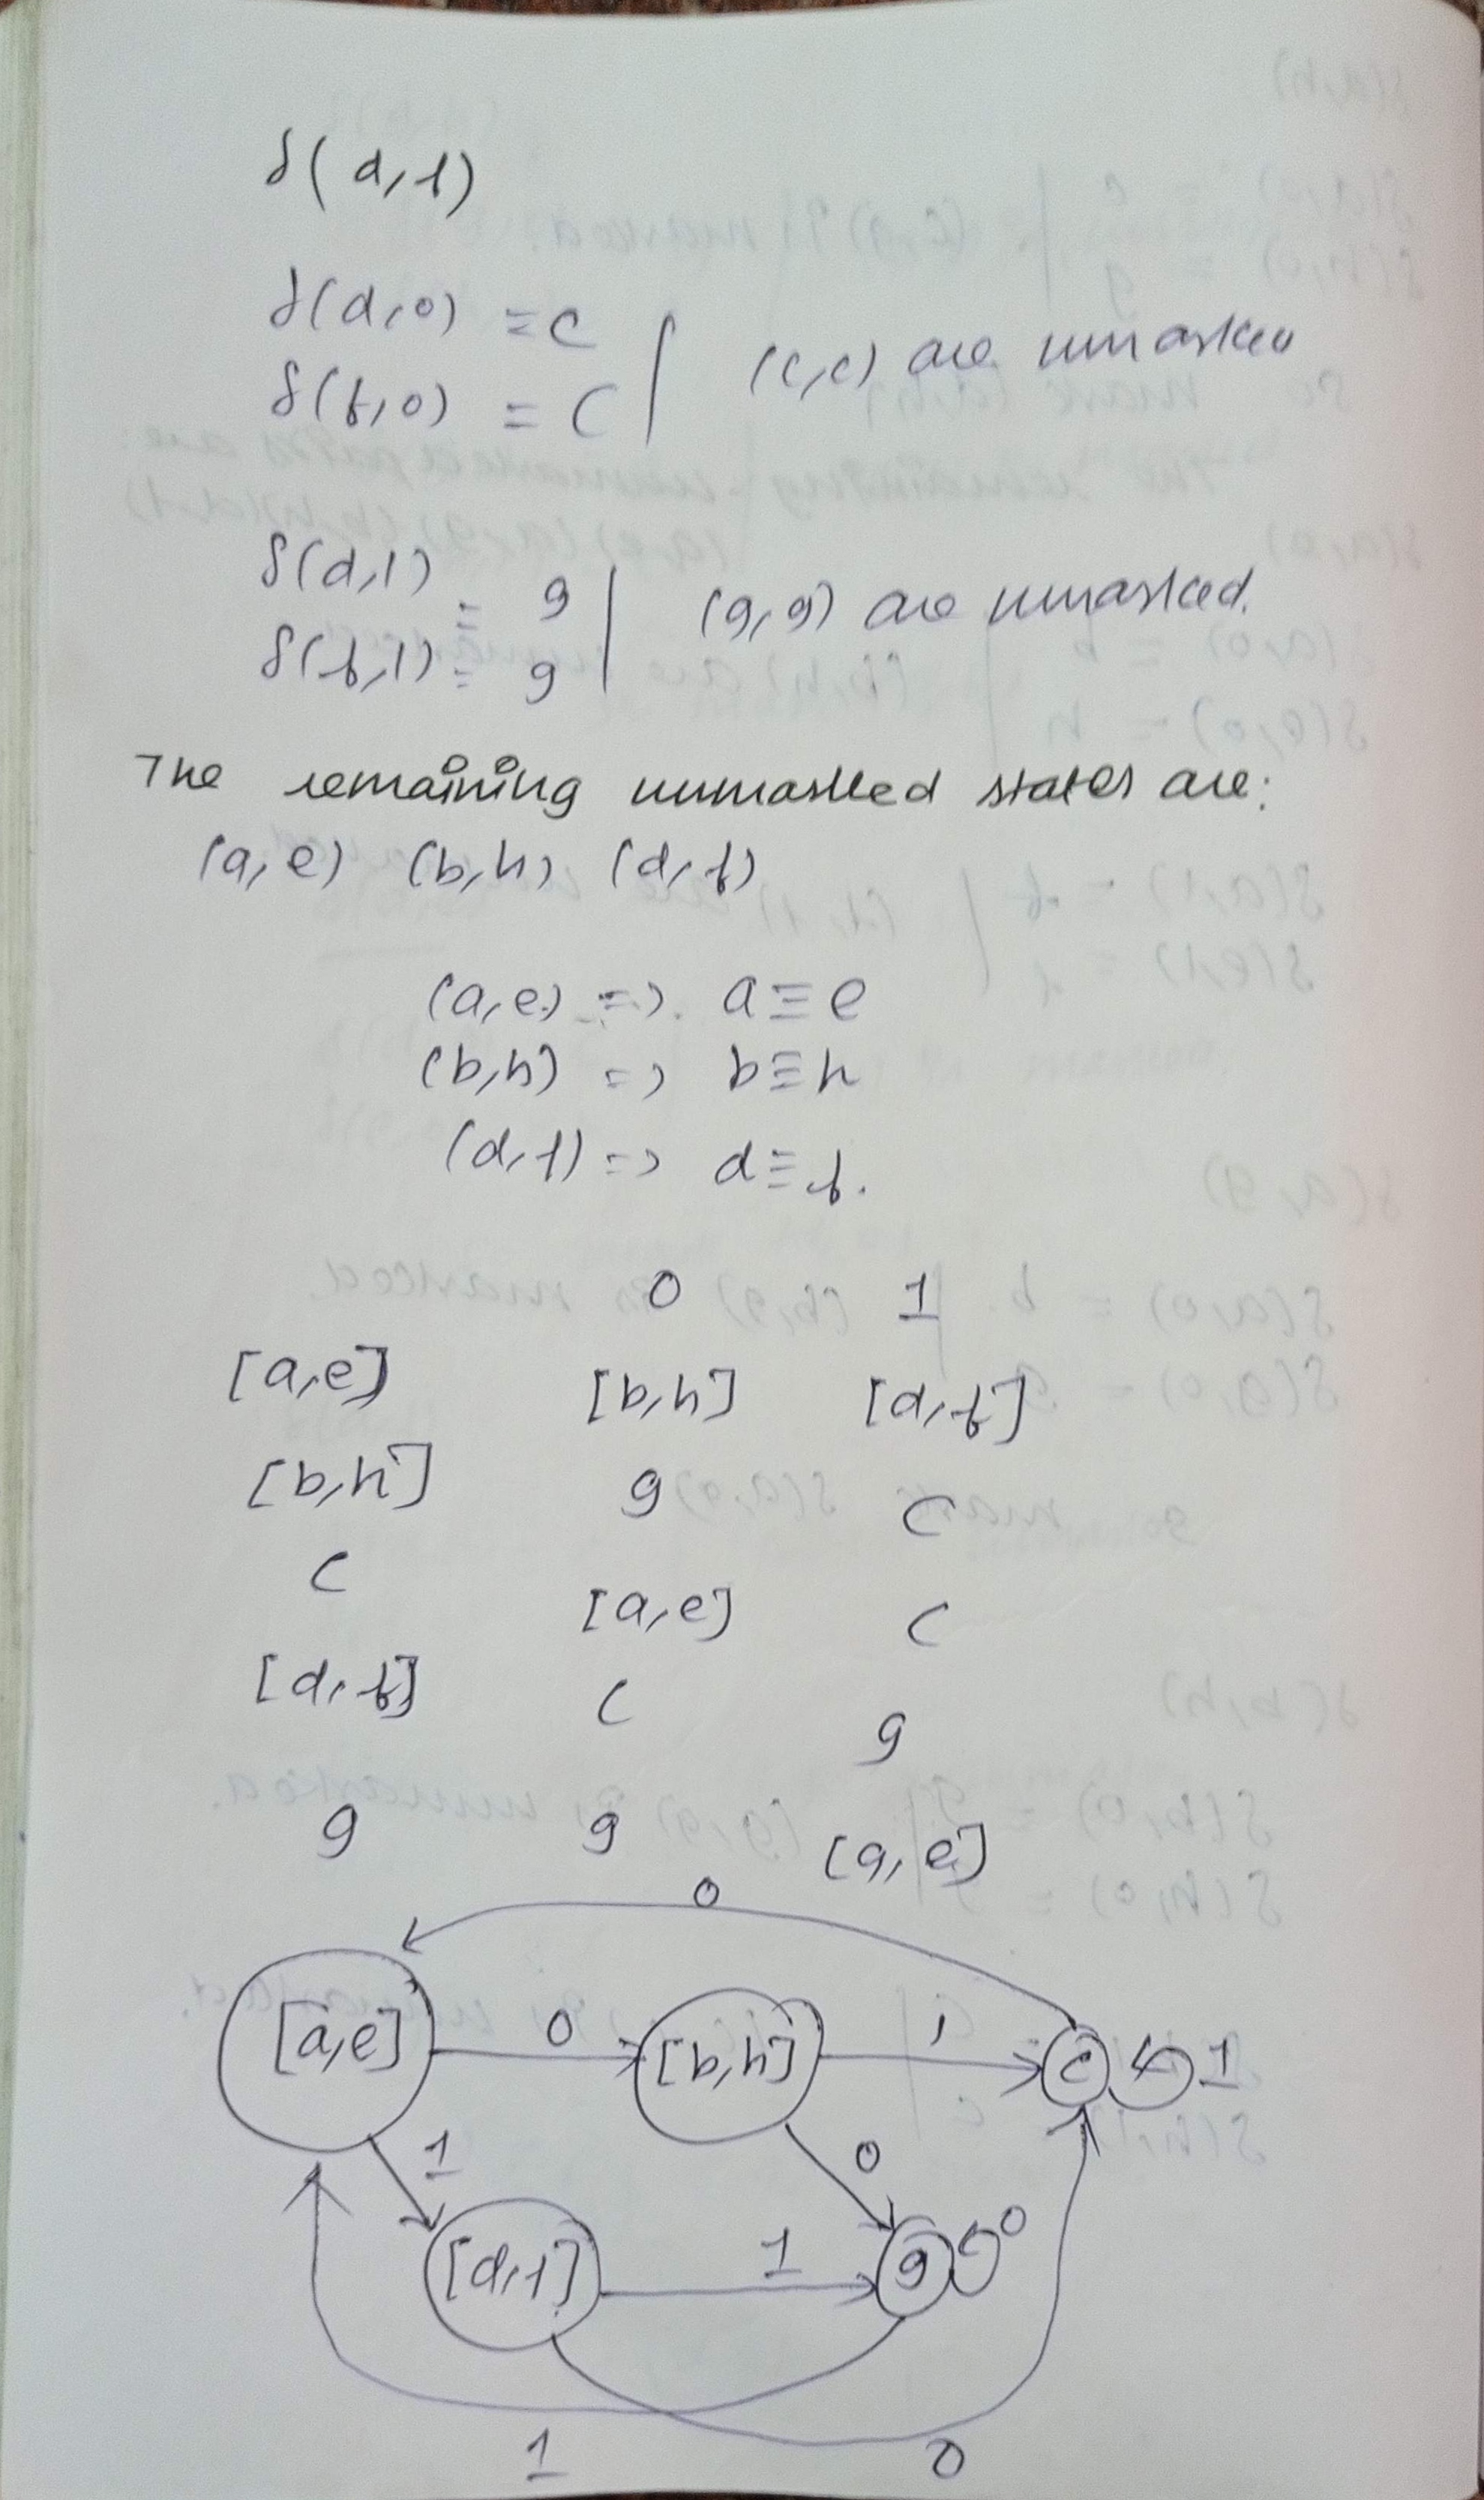 δ(d,f)
δ(d,0) = c
δ(f,0) = c
(c,c) are unmarked
δ(d,1) = g
δ(f,1) = g
(g,g) are unmarked.
The remaining unmarked states are:
(a,e) (b,h) (d,f)
(a,e) => a ≡ e
(b,h) => b ≡ h
(d,f) => d ≡ f.
0 1
[a,e] [b,h] [d,f]
[b,h] g c
c [a,e] c
[d,f] c g
g g [a,e]
0
[a,e] 0 [b,h] 1 c 1
1 0
[d,f] 1 g 0
1 0